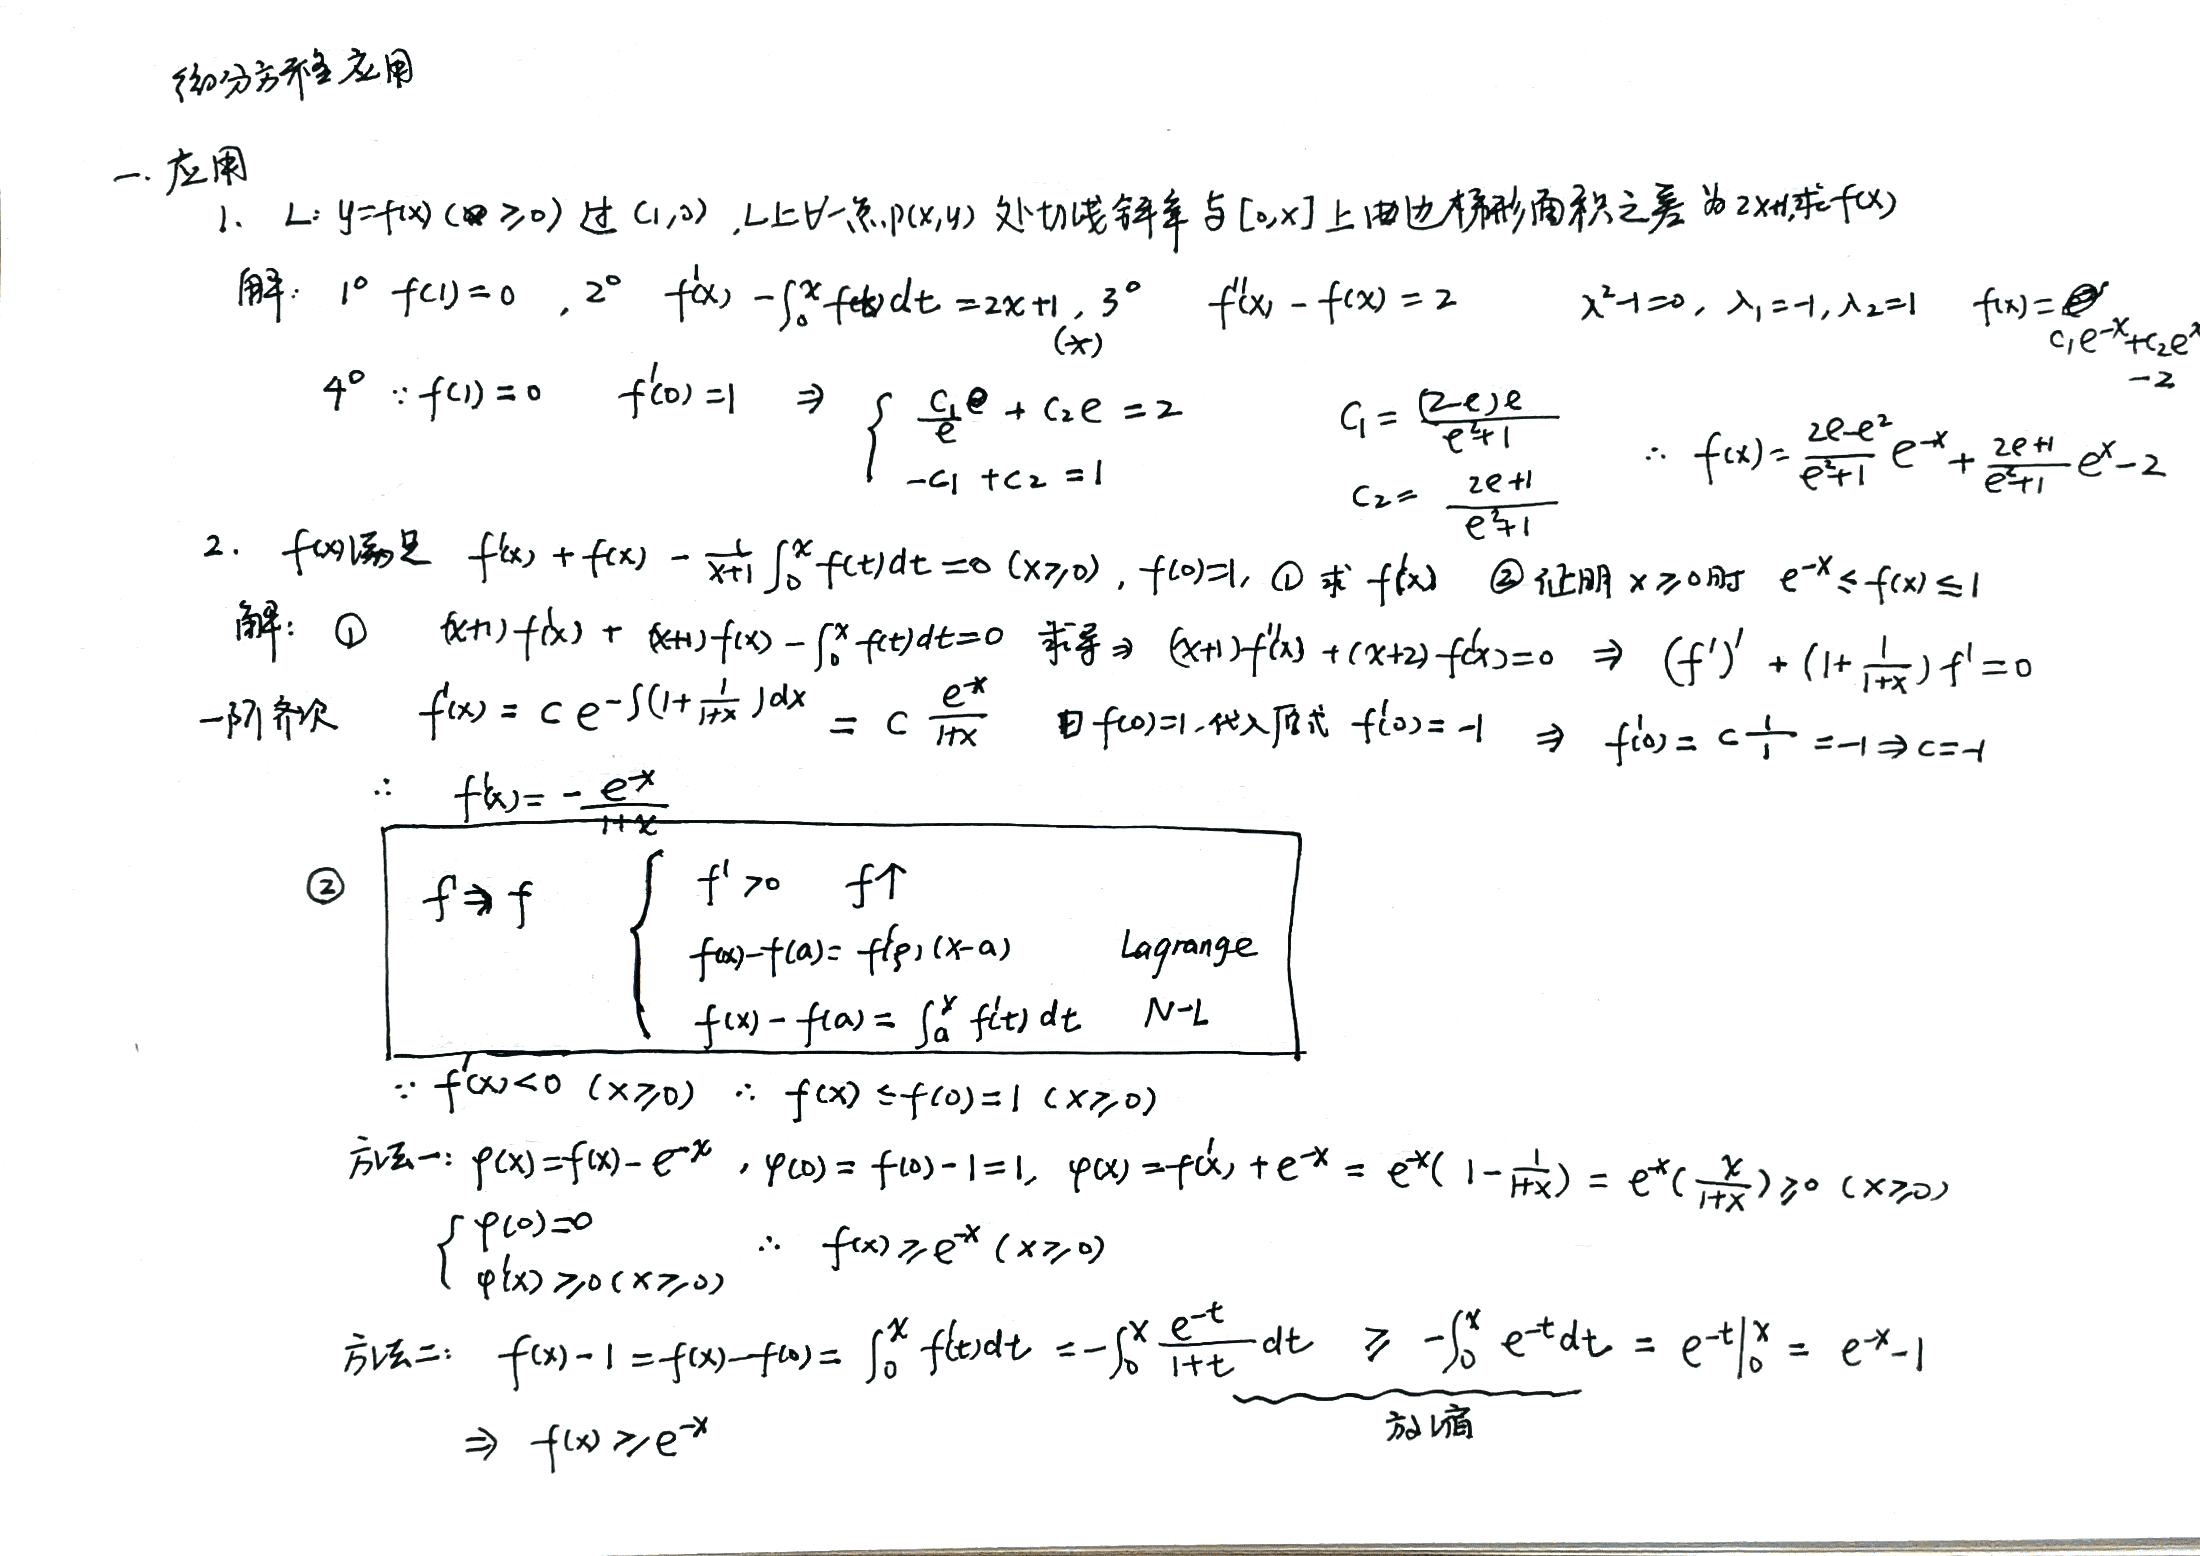 微分方程应用
一. 应用
1. L: y=f(x) (x≥0) 过 (1,0) ,L上∀一点p(x,y) 处切线斜率与[0,x]上曲边梯形面积之差为2x+1,求f(x)
解: 1° f(1)=0 , 2° f'(x) -∫₀ˣ f(t)dt =2x+1 (*) , 3° f''(x) - f(x) = 2 λ²-1=0, λ₁=-1, λ₂=1 f(x)= c₁e⁻ˣ+c₂eˣ -2
4° ∵ f(1)=0 f'(0)=1 ⇒ { c₁/e + c₂e = 2 , -c₁ +c₂ =1 C₁ = (2-e)e/(e²+1) C₂= (2e+1)/(e²+1) ∴ f(x)= (2e-e²)/(e²+1) e⁻ˣ + (2e+1)/(e²+1) eˣ-2
2. f(x)满足 f'(x) + f(x) - 1/(x+1) ∫₀ˣ f(t)dt =0 (x≥0) , f(0)=1, ① 求 f'(x) ② 证明 x≥0时 e⁻ˣ≤f(x)≤1
解: ① (x+1)f'(x) + (x+1)f(x) - ∫₀ˣ f(t)dt=0 求导⇒ (x+1)f''(x) +(x+2)f'(x)=0 ⇒ (f')' + (1+ 1/(1+x)) f'=0
一阶齐次 f'(x) = c e^(-∫(1+ 1/(1+x))dx) = c e⁻ˣ/(1+x) 由 f(0)=1,代入原式 f'(0)= -1 ⇒ f'(0)= c 1/1 =-1⇒c=-1
∴ f'(x)= - e⁻ˣ/(1+x)
② f'⇒f { f'>0 f↑
f(x)-f(a)= f'(ξ)(x-a) Lagrange
f(x)-f(a)= ∫ₐˣ f'(t) dt N-L
∵ f'(x)<0 (x≥0) ∴ f(x) ≤f(0)=1 (x≥0)
方法一: φ(x)=f(x)- e⁻ˣ , φ(0)= f(0)-1=1, φ(x) =f'(x) +e⁻ˣ = e⁻ˣ( 1- 1/(1+x)) = e⁻ˣ( x/(1+x)) ≥0 (x≥0)
{ φ(0)=0 , φ'(x) ≥0(x≥0) ∴ f(x)≥e⁻ˣ (x≥0)
方法二: f(x)-1 =f(x)-f(0)= ∫₀ˣ f'(t)dt =-∫₀ˣ e⁻ᵗ/(1+t) dt ≥ -∫₀ˣ e⁻ᵗdt = e⁻ᵗ|₀ˣ = e⁻ˣ-1
放缩
⇒ f(x)≥e⁻ˣ